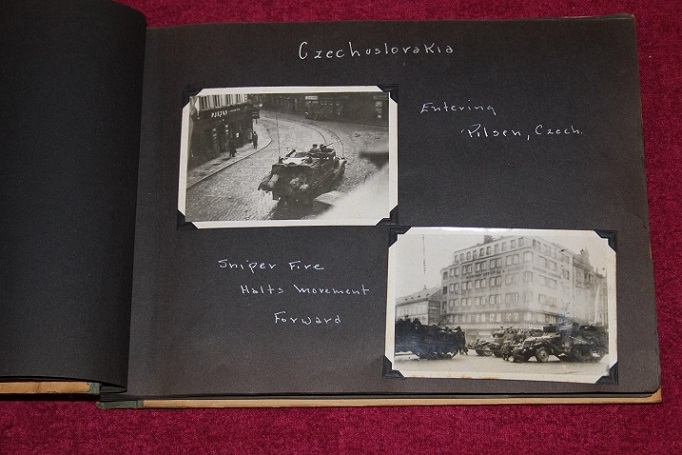 Czechoslovakia
Entering
Pilsen, Czech.
Sniper Fire
Halts Movement
Forward